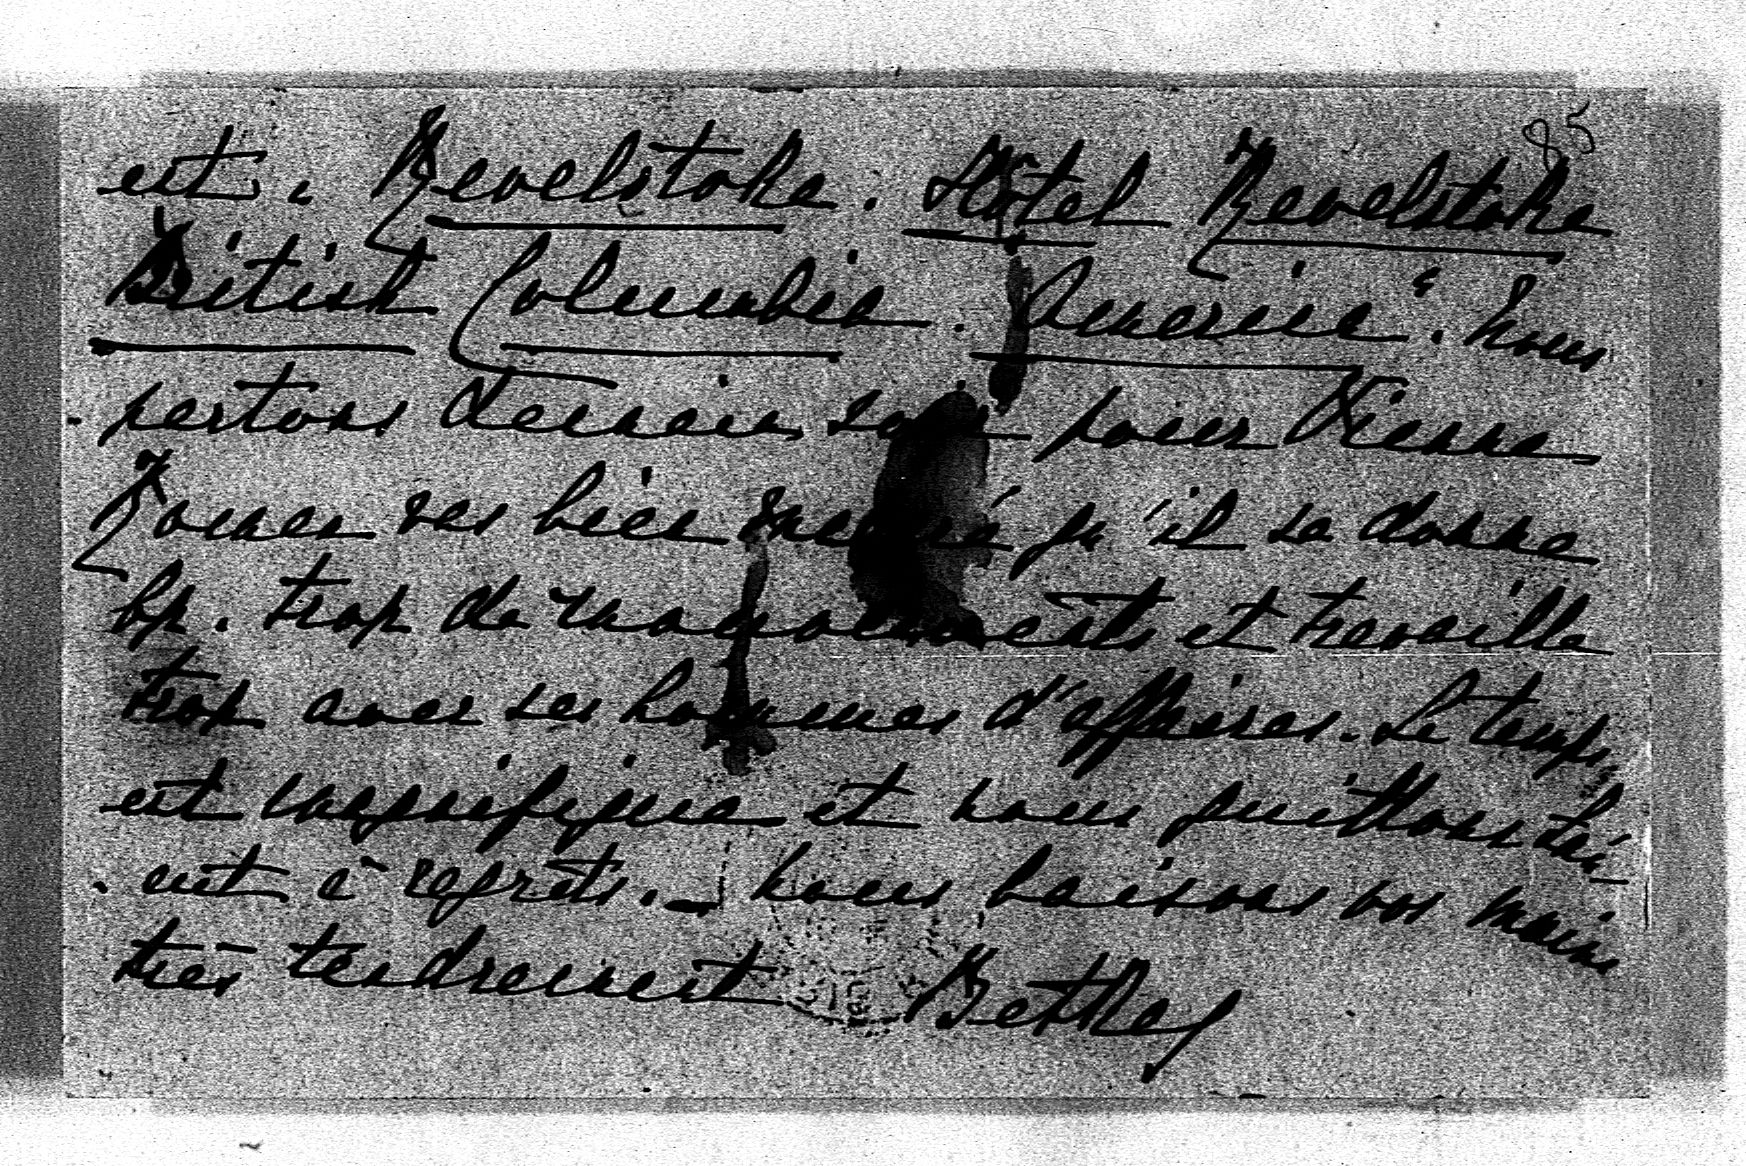 85
est. Revelstoke. Hôtel Revelstoke
British Columbia. America". Nous
partons demain soir pour Vienne
bien qu'il se donne
bp. trop de mouvements et travaille
trop avec ses hommes d'affaires. Le temps
est magnifique et nous quittons
à regrets. _ Nous baisons vos mains
très tendrement